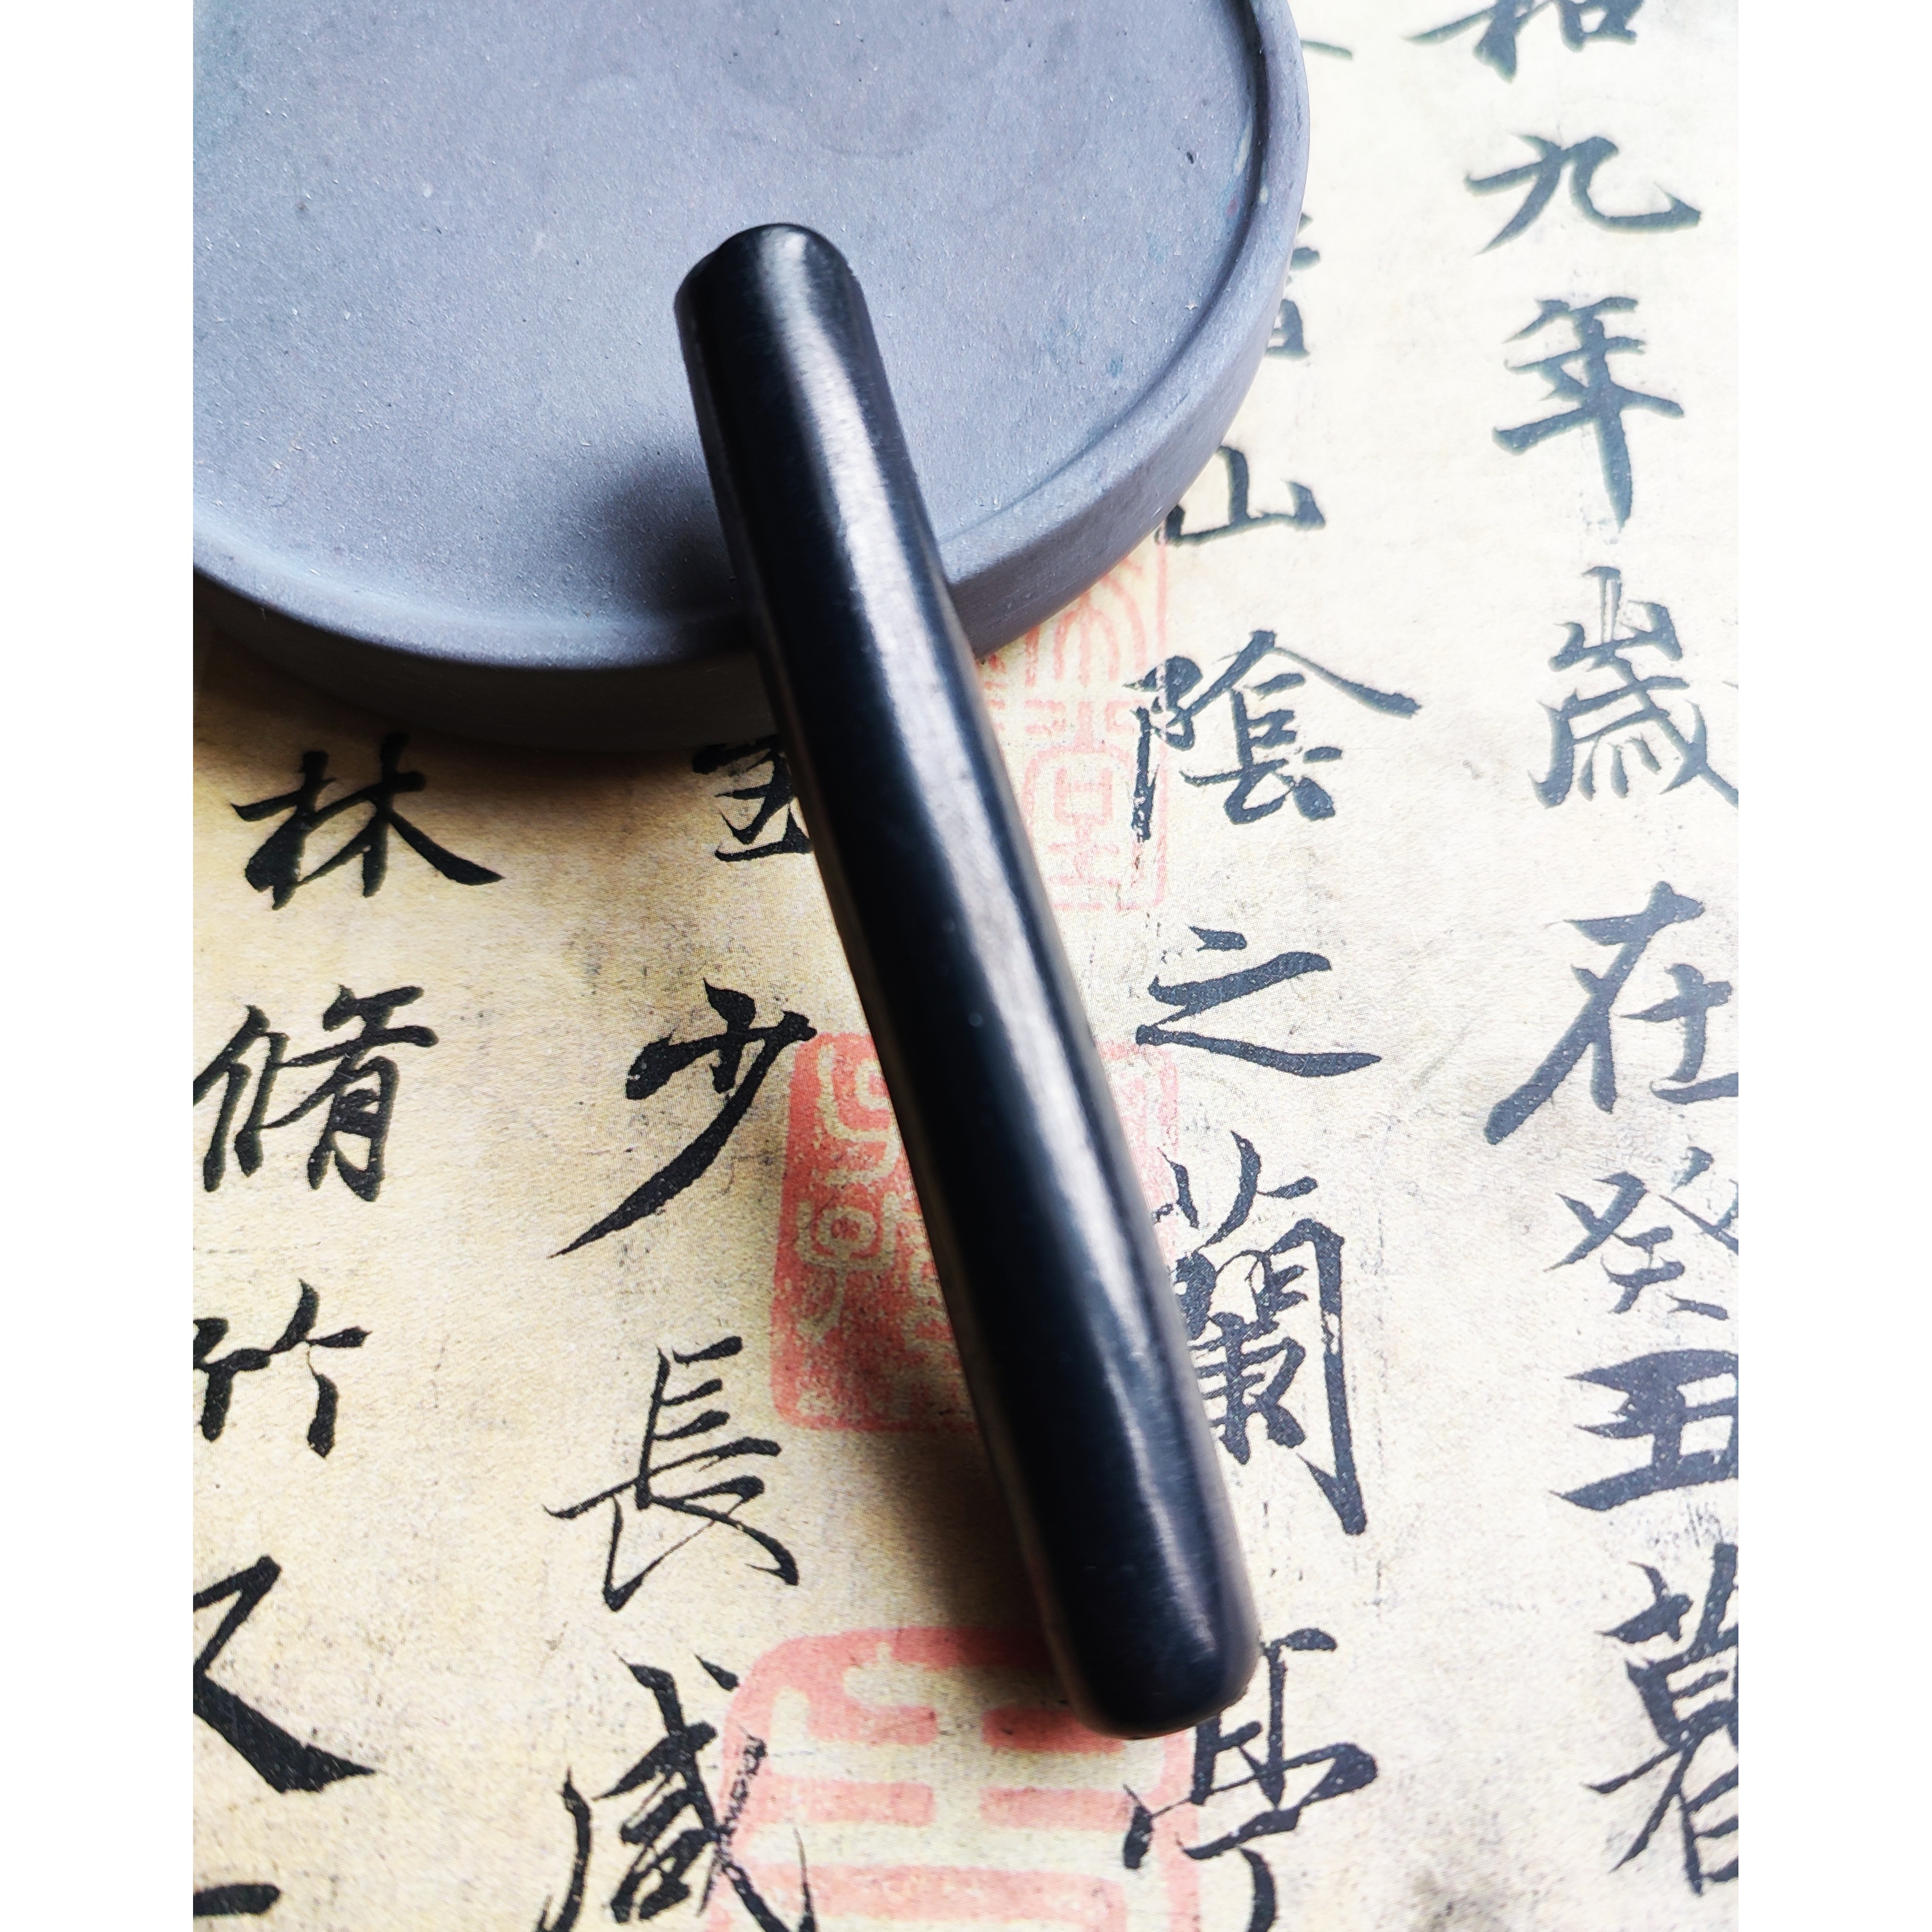 和九年歲在癸丑暮
山陰之蘭亭
至少長咸
林脩竹又